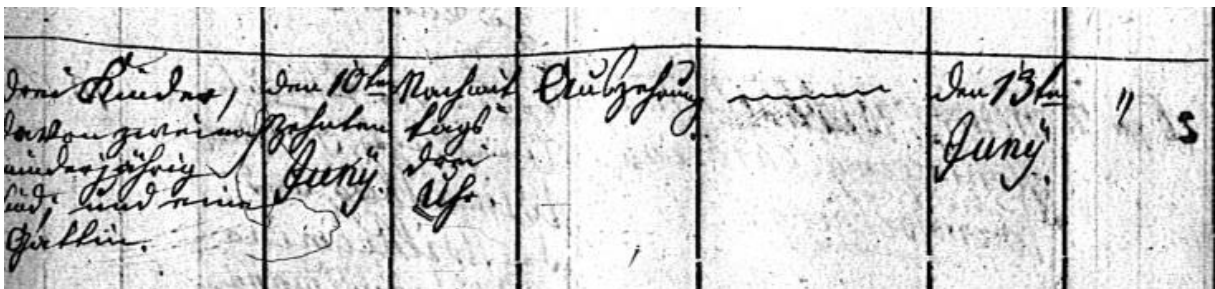 drei Kinder,
davon zwei noch
minderjährig
sind, und eine
Gattin.
den 10ten
Zehnten
Juny.
Nachmit
tags
drei
Uhr.
Auszehrung
den 13ten
Juny.
" s